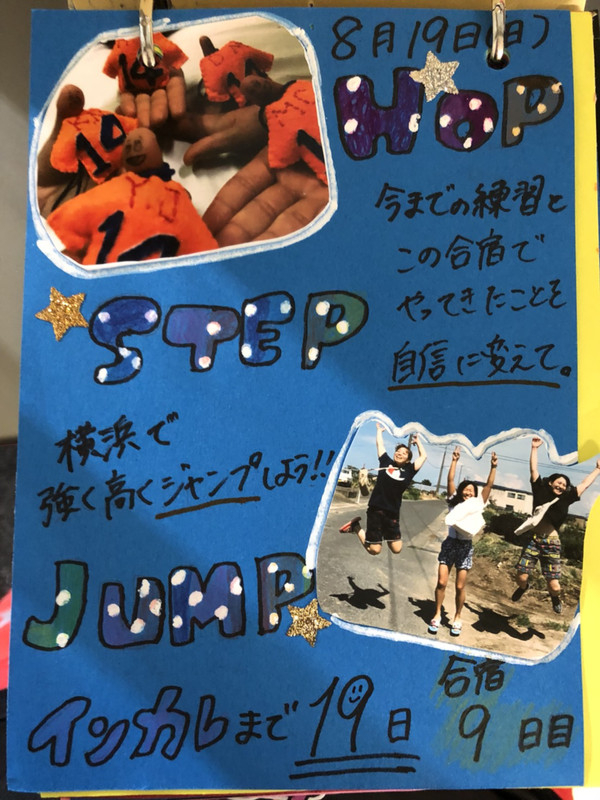 8月19日(日)
HOP
今までの練習と
この合宿で
やってきたことを
自信に変えて。
STEP
横浜で
強く高くジャンプしよう!!
JUMP
合宿
インカレまで19日 9日目
14
19